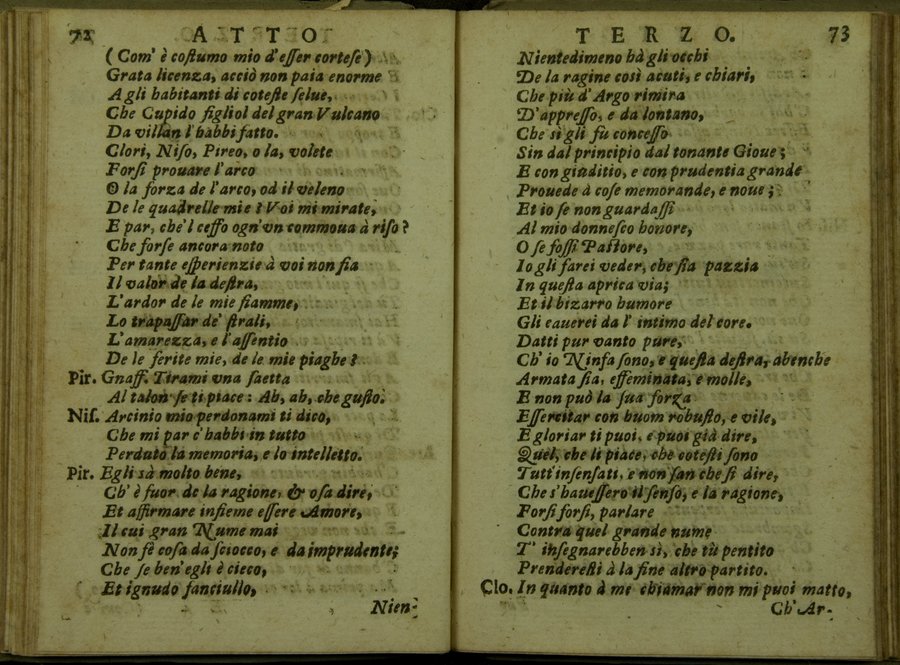 72 ATTO
(Com' è coſtumo mio d'eſſer corteſe)
Grata licenza, acciò non paia enorme
A gli habitanti di coteſte ſelue,
Che Cupido figliol del gran Vulcano
Da villan l'habbi fatto.
Clori, Niſo, Pireo, o la, volete
Forſi prouare l'arco
O la forza de l'arco, od il veleno
De le quadrelle mie? Voi mi mirate,
E par, che'l ceffo ogn'vn commoua à riſo?
Che forſe ancora noto
Per tante eſperienzie à voi non ſia
Il valor de la deſtra,
L'ardor de le mie fiamme,
Lo trapaſſar de' ſtrali,
L'amarezza, e l'aſſentio
De le ferite mie, de le mie piaghe?
Pir. Gnaff. Tirami vna ſaetta
Al talon ſe ti piace: Ah, ah, che guſto.
Niſ. Arcinio mio perdonami ti dico,
Che mi par c'habbi in tutto
Perduto la memoria, e lo intelletto.
Pir. Egli sà molto bene,
Ch' è fuor de la ragione, & oſa dire,
Et affirmare inſieme eſſere Amore,
Il cui gran Nume mai
Non fè coſa da ſciocco, e da imprudente;
Che ſe ben'egli è cieco,
Et ignudo fanciullo,
Nien-
TERZO. 73
Nientedimeno hà gli occhi
De la ragine così acuti, e chiari,
Che più d'Argo rimira
D'appreſſo, e da lontano,
Che sì gli fù conceſſo
Sin dal principio dal tonante Gioue;
E con giuditio, e con prudentia grande
Prouede à coſe memorande, e noue;
Et io ſe non guardaſſi
Al mio donneſco honore,
O ſe foſſi Paſtore,
Io gli farei veder, che ſia pazzia
In queſta aprica via;
Et il bizarro humore
Gli cauerei da l' intimo del core.
Datti pur vanto pure,
Ch' io Ninfa ſono, e queſta deſtra, abenche
Armata ſia, effeminata, e molle,
E non può la ſua forza
Eſſercitar con huom robuſto, e vile,
E gloriar ti puoi, e puoi già dire,
Quel, che li piace, che coteſti ſono
Tutt'inſenſati, e non ſan che ſi dire,
Che s'haueſſero il ſenſo, e la ragione,
Forſi forſi, parlare
Contra quel grande nume
T' inſegnarebben sì, che tù pentito
Prendereſti à la fine altro partito.
Clo. In quanto à me chiamar non mi puoi matto,
Ch' Ar-